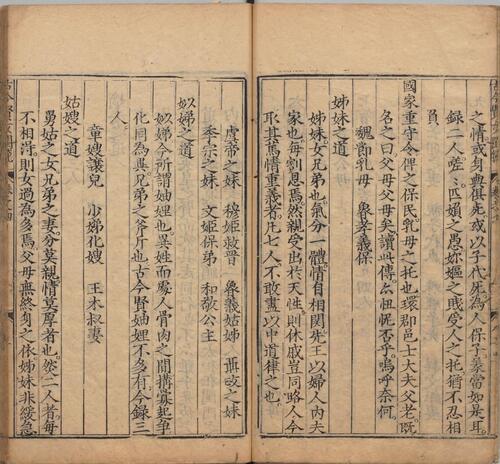 之情或身與俱死或以子代死為人保子豪當如是耳
録二人嗟嗟臣嬪之愚妳嫗之賤受人之托猶不忍相
負
國家重守令俾之保民乳母之托也環郡邑士大夫父老既
名之曰父母父母矣讀此傳亦忸怩否乎嗚呼奈何
魏節乳母 魯孝義保
姊妹之道
姊妹女兄弟也氣分一體情自相關先王以婦人內夫
家也每割恩焉然親受出於天性則休戚豈同路人今
取其篤情重義者凡七人不敢盡以中道律之也
虞帝之妹 穆姬救晉 魯義姑姊 聶政之姊
季宗之妹 文姬保弟 和敬公主
姒娣之道
姒娣今所謂妯娌也異姓而處人骨肉之間搆寡起爭
化同為異兄弟之斧斤也古今賢妯娌不多有今録三
人
章嫂讓兒 少娣化嫂 王木叔妻
姑嫂之道
舅姑之女兄弟之妻分莫親情莫厚者也然二人者每
不相得則女過為多焉父母無終身之依姊妹非緩急